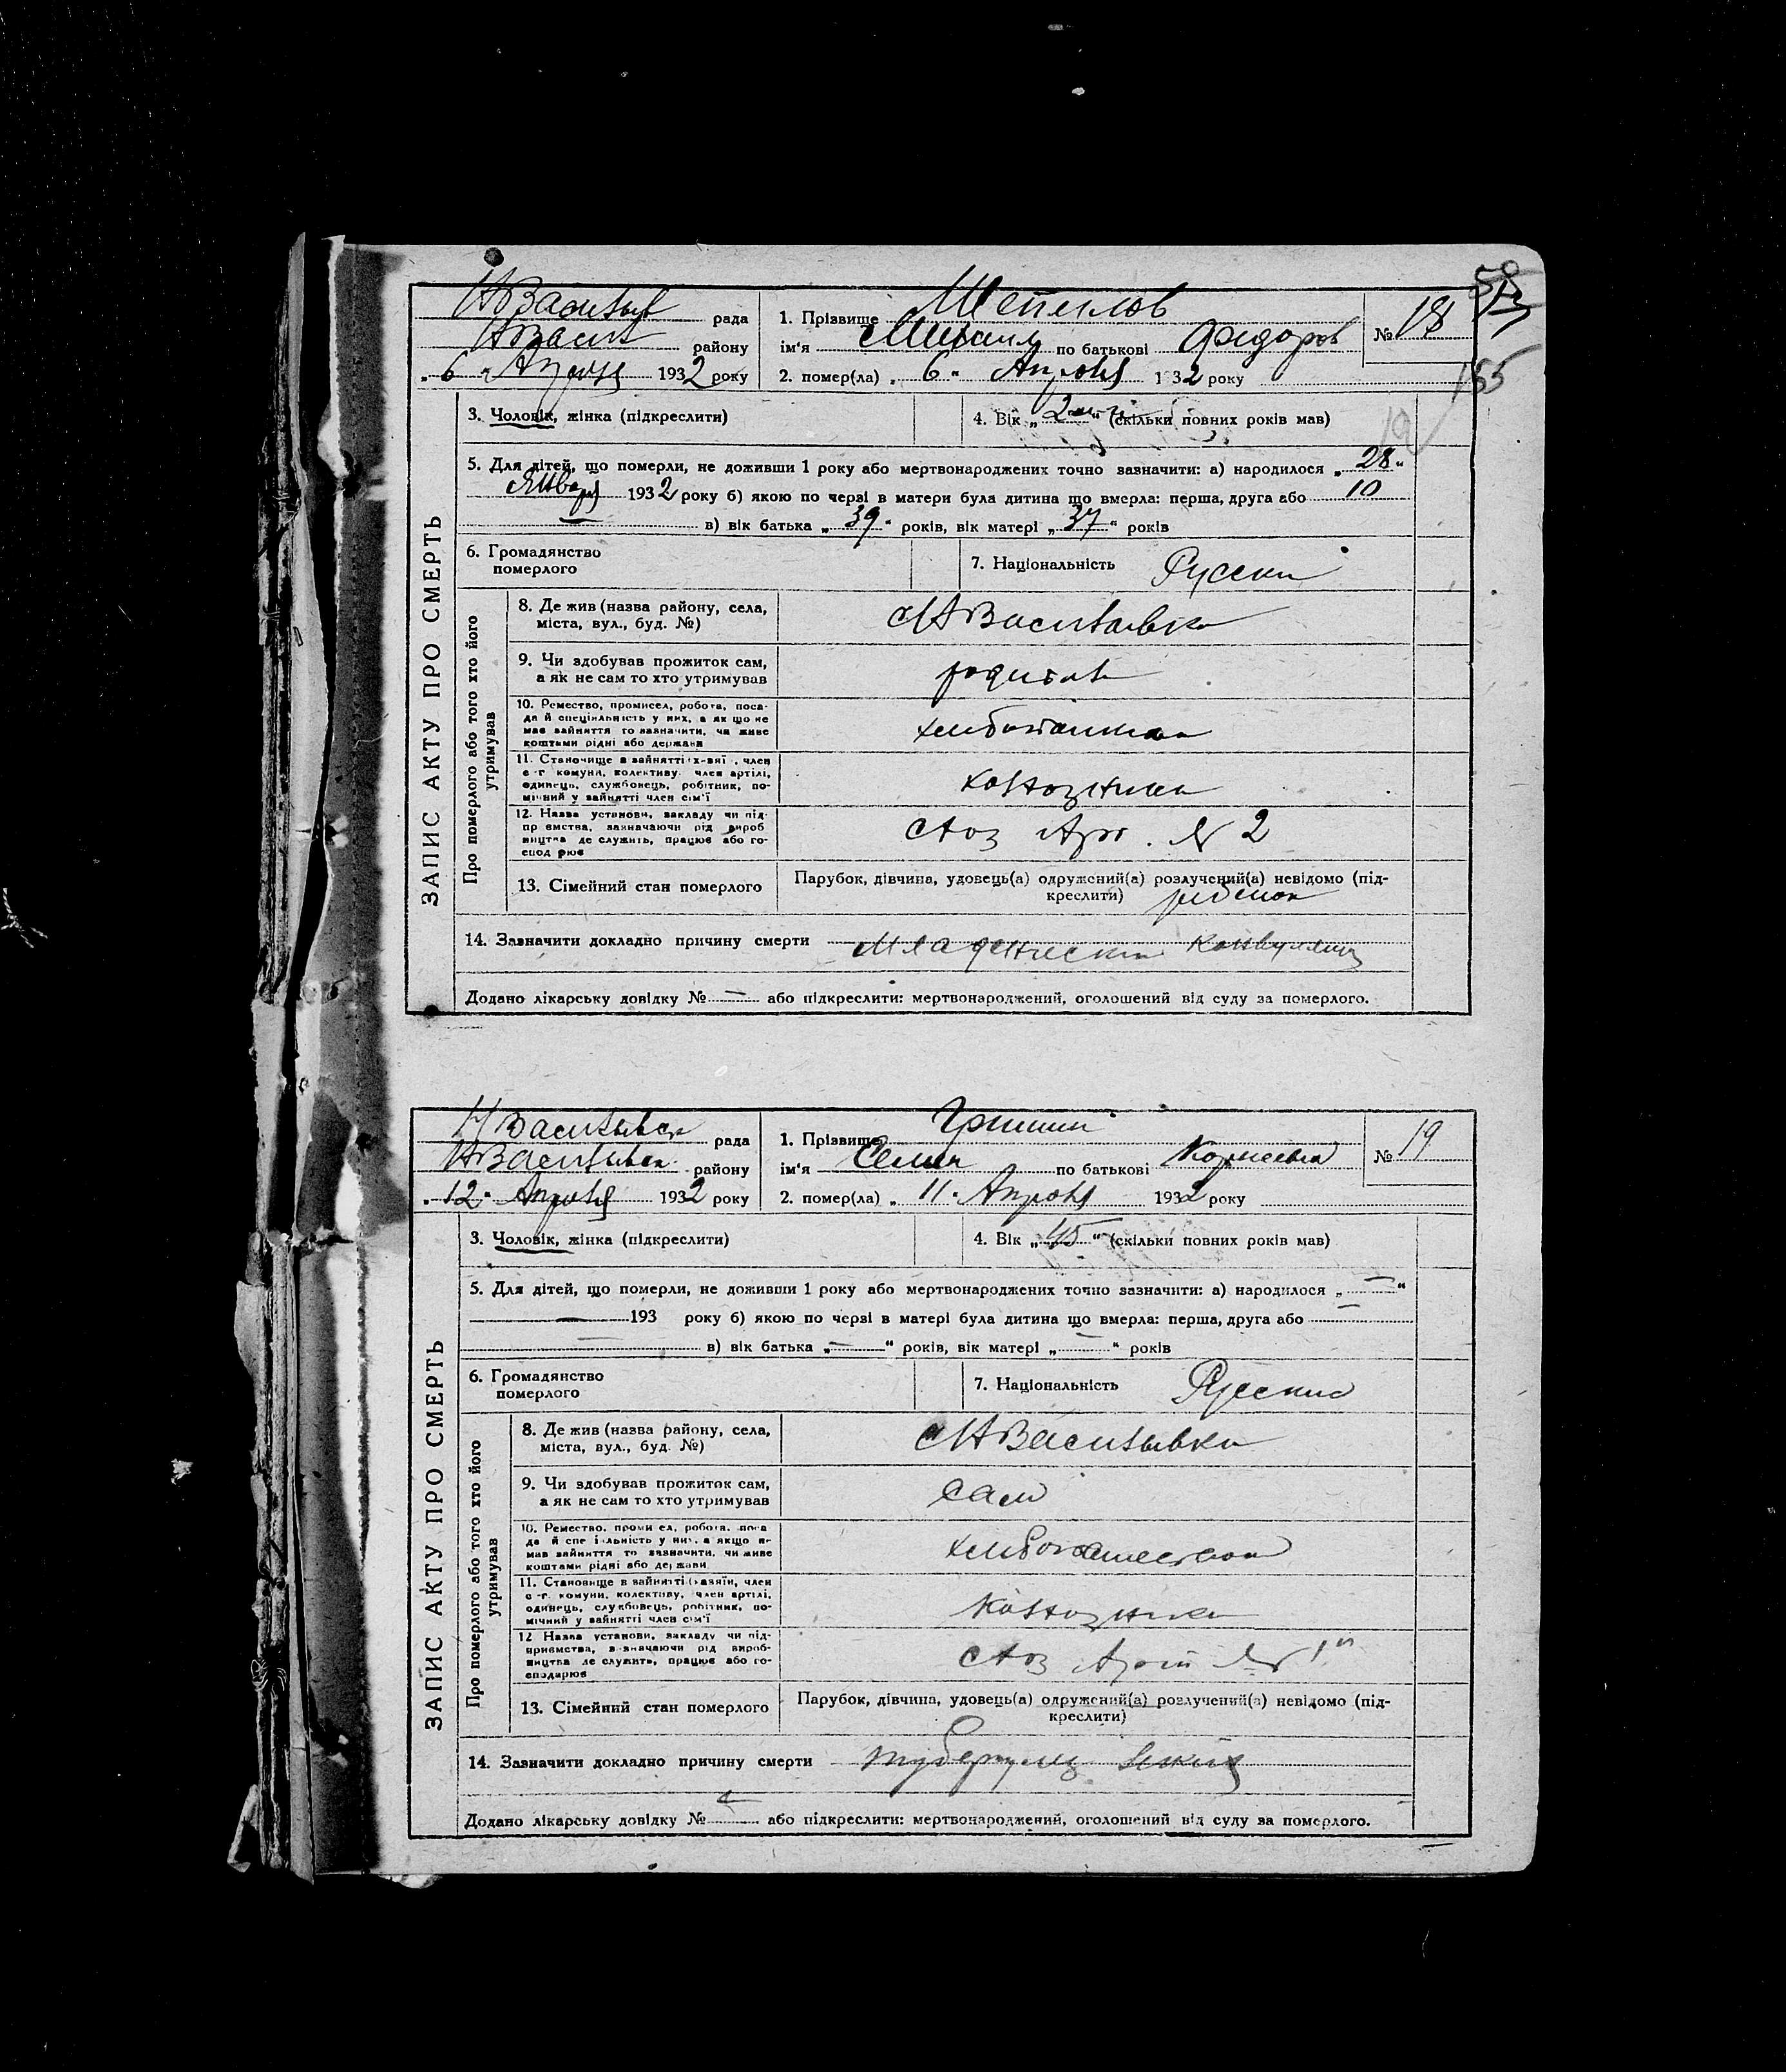 58
13
155
19
Н Васильев рада
Н Васил району
„ 6 " Апреля 1932 року
1. Прізвище Шепелов
ім'я Михаил по батькові Федоров
2. помер(ла) „ 6 " Апреля 1932 року
№ 18
ЗАПИС АКТУ ПРО СМЕРТЬ
3. Чоловік, жінка (підкреслити)
4. Вік „ 2 м-ц " (скільки повних років мав)
5. Для дітей, що померли, не доживши 1 року або мертвонароджених точно зазначити: а) народилося „ 28 "
Январ 1932 року б) якою по черзі в матери була дитина що вмерла: перша, друга або 10
— в) вік батька „ 39 " років, вік матері „ 37 " років
6. Громадянство
померлого
7. Національність Русски
Про померлого або того хто його
утримував
8. Де жив (назва району, села,
міста, вул., буд. №)
с Н Васильевка
9. Чи здобував прожиток сам,
а як не сам то хто утримував
родители
10. Ремество, промисел, робота, поса-
да й спеціяльність у них, а як що не
мав зайняття то зазначити, чи живе
коштами рідні або держави
11. Становище в зайнятті член
с-г комуни, колективу, член артілі,
одинець, службовець, робітник, по-
мічний у зайнятті член сім'ї
колхозники
12. Назва установи, закладу чи під-
приємства, зазначаючи рід вироб
ництва де служить, працює або го-
сподарює
Арт. № 2
13. Сімейний стан померлого
Парубок, дівчина, удовець(а) одружений(а) розлучений(а) невідомо (під-
креслити) ребенок
14. Зазначити докладно причину смерти Младенчески конвульзи
Додано лікарську довідку № — або підкреслити: мертвонароджений, оголошений від суду за померлого.
Н Васильевск рада
Н Васильевск району
„ 12 " Апреля 1932 року
1. Прізвище Гришин
ім'я Семен по батькові Корнеевич
2. помер(ла) „ 11 " Апреля 1932 року
№ 19
ЗАПИС АКТУ ПРО СМЕРТЬ
3. Чоловік, жінка (підкреслити)
4. Вік „ 45 " (скільки повних років мав)
5. Для дітей, що померли, не доживши 1 року або мертвонароджених точно зазначити: а) народилося „ — "
— 193 року б) якою по черзі в матері була дитина що вмерла: перша, друга або —
— в) вік батька „ — " років, вік матері „ — " років
6. Громадянство
померлого
7. Національність Русский
Про померлого або того хто його
утримував
8. Де жив (назва району, села,
міста, вул., буд. №)
с Н Васильевка
9. Чи здобував прожиток сам,
а як не сам то хто утримував
сам
10. Ремество, промисел, робота, поса
да й спеціяльність у них, а якщо не
мав зайняття то зазначити, чи живе
коштами рідні або держави
11. Становище в зайнятті (хазяїн, член
с-г. комуни, колективу, член артілі,
одинець, службовець, робітник, по-
мічний у зайнятті член сім'ї
колхозник
12 Назва установи, закладу чи під-
приємства, зазначаючи рід вироб-
ництва де служить, працює або го-
сподарює
Арт № 1
13. Сімейний стан померлого
Парубок, дівчина, удовець(а) одружений(а) розлучений(а) невідомо (під-
креслити)
14. Зазначити докладно причину смерти туберкулез легких
Додано лікарську довідку № — або підкреслити: мертвонароджений, оголошений від суду за померлого.